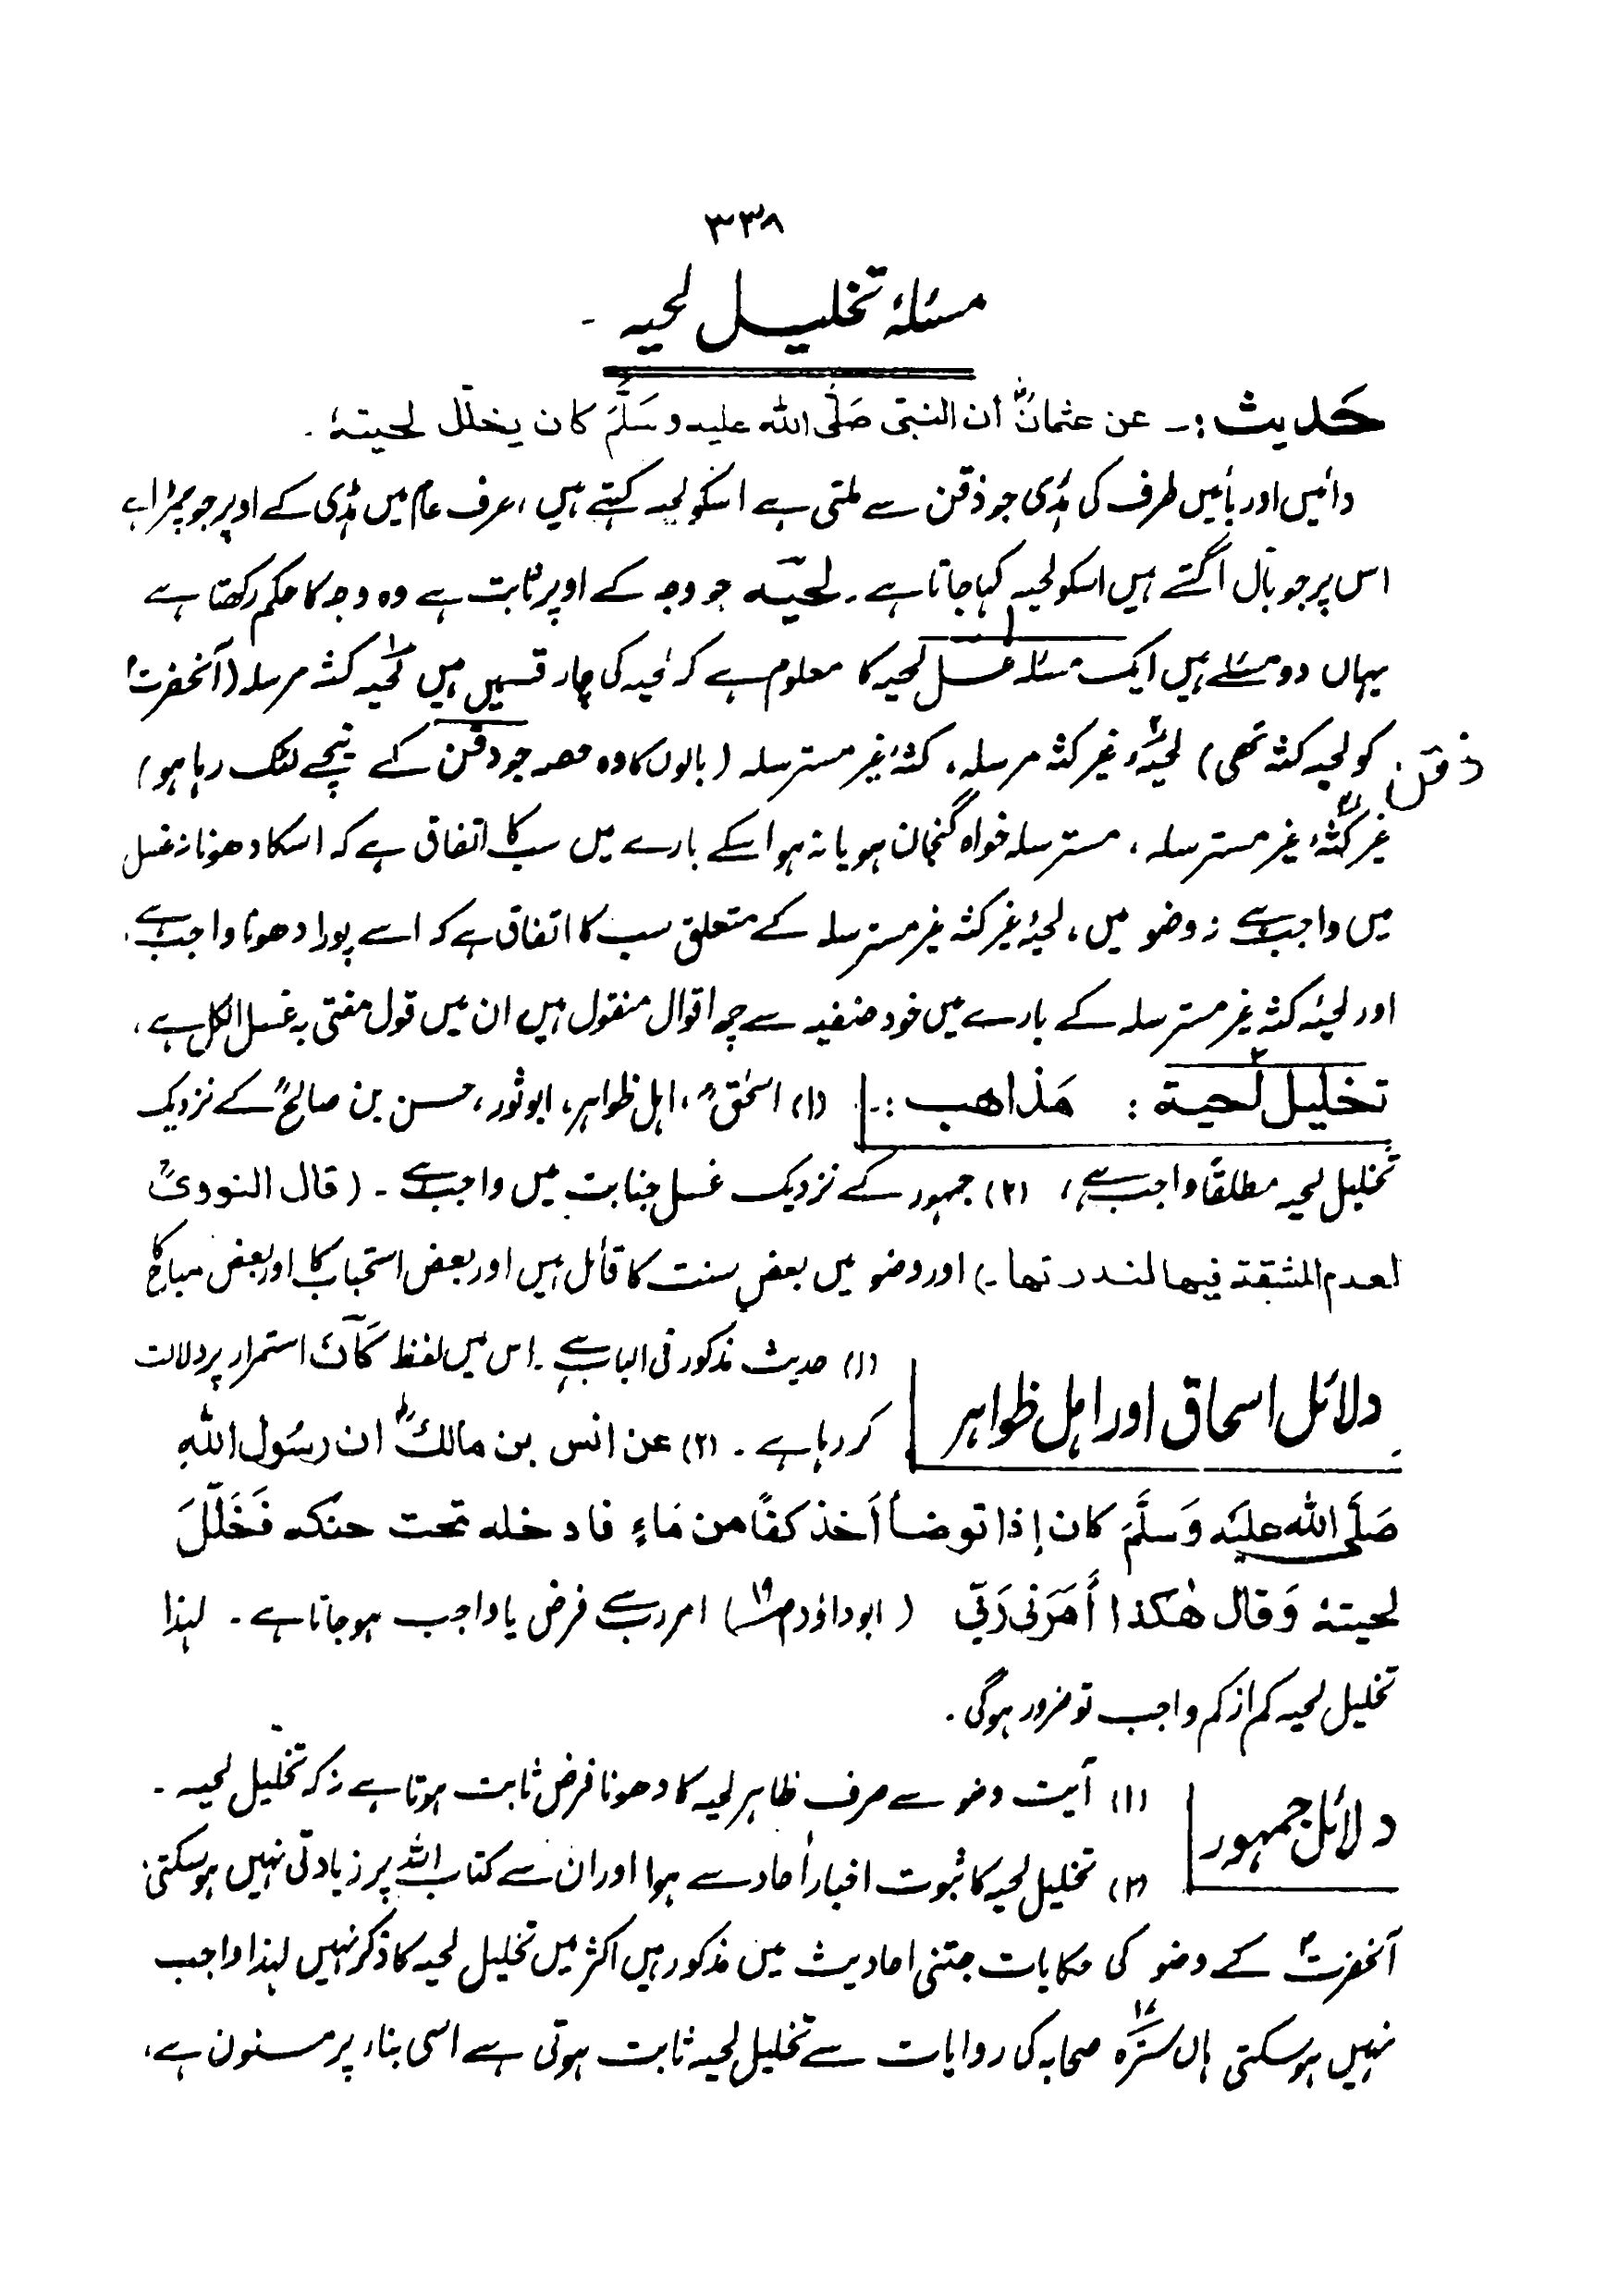 ۳۳۸
مسئلۂ تخلیل لحیہ ۔
حَدیث :۔ عن عثمانؓ أن النبی صَلَّی اللہ علیہ وسَلَّمَ کان یخلّل لحیتہٗ .
دائیں اور بائیں طرف کی ہڈی جو ذقن سے ملتی ہے اسکو لحیہ کہتے ہیں ، عرف عام میں ہڈی کے اوپر جو چمڑا ہے
اس پر جو بال اگتے ہیں اسکو لحیہ کہا جاتا ہے ۔ لحیہ جو وجہ کے اوپر ثابت ہے وہ وجہ کا حکم رکھتا ہے
یہاں دو مسئلے ہیں ایک مسئلہ غسل لحیہ کا معلوم ہے کہ لحیہ کی چار قسمیں ہیں لحیہ کثہ مرسلہ (آنحضرتؐ
کو لحیہ کثہ تھی) لحیۂ غیر کثہ مرسلہ ، کثۂ غیر مسترسلہ (بالوں کا وہ حصہ جو ذقن کے نیچے لٹک رہا ہو)
ذقن
غیر کثہ غیر مسترسلہ ، مسترسلہ خواہ گنجان ہو یا نہ ہو اسکے بارے میں سب کا اتفاق ہے کہ اسکا دھونا نہ غسل
میں واجب ہے نہ وضو میں ، لحیۂ غیر کثہ غیر مسترسلہ کے متعلق سب کا اتفاق ہے کہ اسے پورا دھونا واجب ہے ،
اور لحیۂ کثہ غیر مسترسلہ کے بارے میں خود حنفیہ سے چھ اقوال منقول ہیں ان میں قول مفتی بہ غسل الکل ہے ،
تخلیل لحیة : مَذاھب :۔ (۱) اسحٰقؒ ، اہل ظواہر ، ابوثور ، حسن بن صالحؒ کے نزدیک
تخلیل لحیہ مطلقًا واجب ہے ، (۲) جمہور کے نزدیک غسل جنابت میں واجب ہے ۔ (قال النوویؒ
لعدم المشقة فیھا لندرتھا ۔) اور وضو میں بعض سنت کا قائل ہیں اور بعض استحباب کا اور بعض مباح کا
دلائل اسحاق اور اہل ظواہر (۱) حدیث مذکور فی الباب ہے ۔ اس میں لفظ کَانَ استمرار پر دلالت
کر رہا ہے ۔ (۲) عن انس بن مالکؓ ان رسُول اللہِ
صَلَّی اللہ علیَہ وَسلَّمَ کان إذا توضأ أخذ کفًا من مَاءٍ فادخلہ تحت حنکہ فَخَلَّلَ
لحیتہٗ وَقال ھٰکذا أَمَرَنی رَبّی ( ابوداؤد ص۱۹ ) امر رب سے فرض یا واجب ہو جاتا ہے ۔ لہذا
تخلیل لحیہ کم از کم واجب تو ضرور ہوگی ۔
دلائل جمہور (۱) آیت وضو سے صرف ظاہر لحیہ کا دھونا فرض ثابت ہوتا ہے نہ کہ تخلیل لحیہ ۔
(۲) تخلیل لحیہ کا ثبوت اخبار اٰحاد سے ہوا اور ان سے کتاب اللہ پر زیادتی نہیں ہوسکتی ،
آنحضرتؐ کے وضو کی حکایات جتنی احادیث میں مذکور ہیں اکثر میں تخلیل لحیہ کا ذکر نہیں لہذا واجب
نہیں ہوسکتی ہاں سترہ ۱۷ صحابہ کی روایات سے تخلیل لحیہ ثابت ہوتی ہے اسی بناء پر مسنون ہے ،